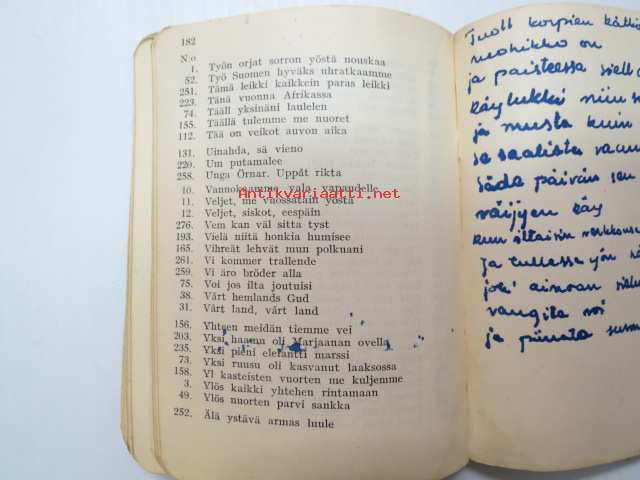 182
N:o
1. Työn orjat sorron yöstä nouskaa
52. Työ Suomen hyväks uhratkaamme
251. Tämä leikki kaikkein paras leikki
223. Tänä vuonna Afrikassa
74. Tääll yksinäni laulelen
155. Täällä tulemme me nuoret
112. Tää on veikot auvon aika
131. Uinahda, sä vieno
220. Um putamalee
258. Unga Örnar. Uppåt rikta
10. Vannokaamme vala vapaudelle
11. Veljet, me vuossatain yöstä
12. Veljet, siskot, eespäin
276. Vem kan väl sitta tyst
193. Vielä niitä honkia humisee
165. Vihreät lehvät mun polkuani
261. Vi kommer trallende
259. Vi äro bröder alla
75. Voi jos ilta joutuisi
38. Vårt hemlands Gud
31. Vårt land, vårt land
156. Yhteen meidän tiemme vei
203. Yksi haamu oli Marjaanan ovella
235. Yksi pieni elefantti marssi
73. Yksi ruusu oli kasvanut laaksossa
158. Yl kasteisten vuorten me kuljemme
3. Ylös kaikki yhtehen rintamaan
49. Ylös nuorten parvi sankka
252. Älä ystävä armas luule
Antikvariaatti.net
Tuoll korpien
on
ja paisteessa
käy
ja musta kuin
saalista
Sada päivän sen
väijyen käy
kun
Ja tullessa yön
joki ainoan
vangita voi
ja